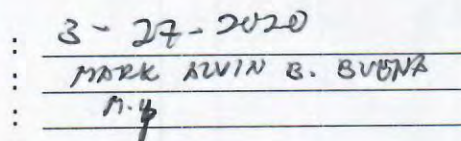 : 3-27-2020
: MARK ALVIN B. BUENA
: